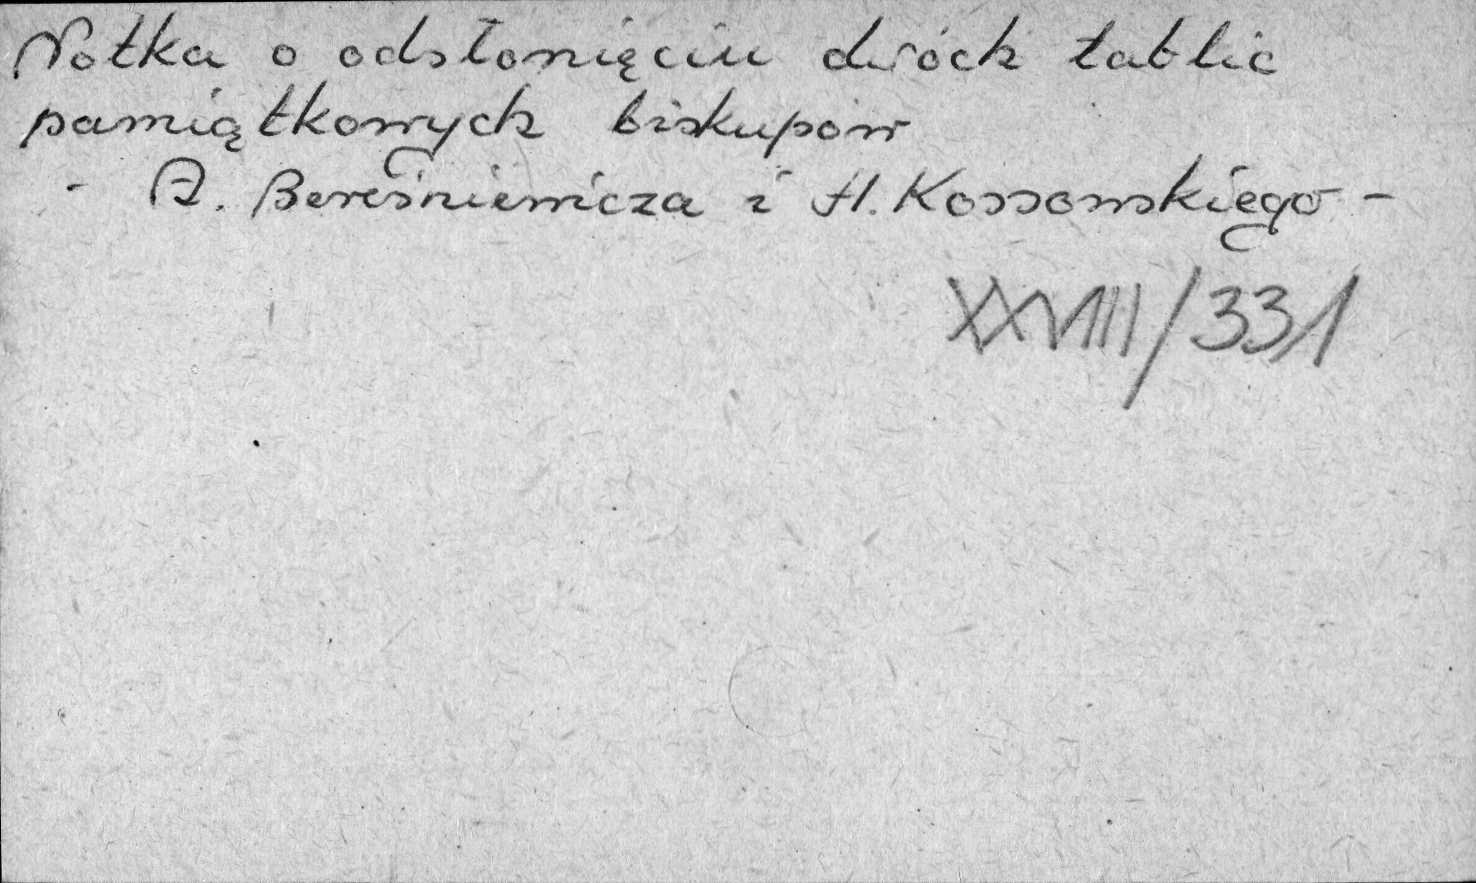 Notka o odsłonięciu dwóch tablic
pamiątkowych biskupów
- A. Bereśniewicza i H. Kossowskiego -
XXVIII/331